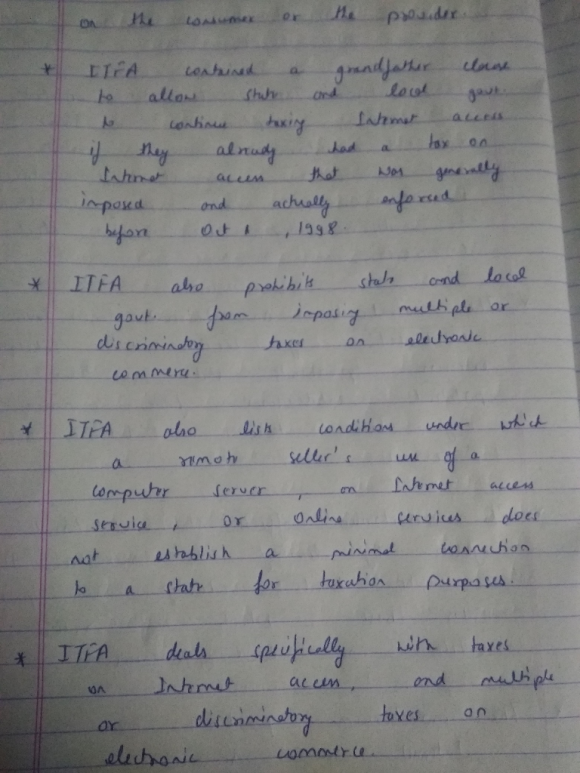 on the consumer or the provider.
* ITFA contained a grandfather clause
to allow state and local govt.
to continue taxing Internet access
if they already had a tax on
Internet access that was generally
imposed and actually enforced
before Oct 1, 1998.
* ITFA also prohibits state and local
govt. from imposing multiple or
discriminatory taxes on electronic
commerce.
* ITFA also lists conditions under which
a remote seller's use of a
computer server, an Internet access
service, or online services does
not establish a minimal connection
to a state for taxation purposes.
* ITFA deals specifically with taxes
on Internet access, and multiple
or discriminatory taxes on
electronic commerce.